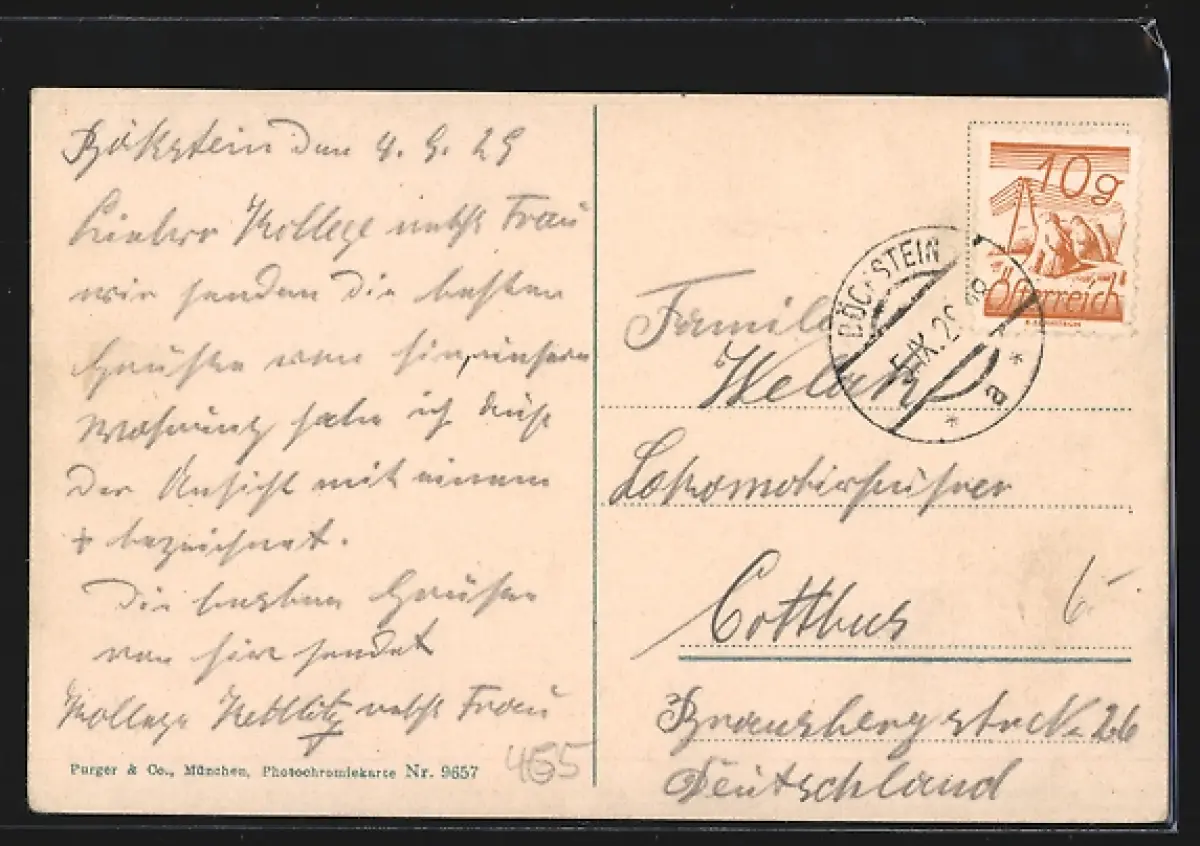 Bökstein den 4. 9. 29
Lieber Kollege nebst Frau
wir senden die besten
Grüße von hier, unsere
Wohnung habe ich auf
der Ansicht mit einem
+ bezeichnet.
Die besten Grüße
von hier sendet
Kollege Kettlitz nebst Frau
Purger & Co., München, Photochromiekarte Nr. 9657
455
10g
Österreich
BÖCKSTEIN
5.IX.29
* a *
Familie
Lokomotivführer
Cottbus
6
Bransbergstrck. 26
Deutschland